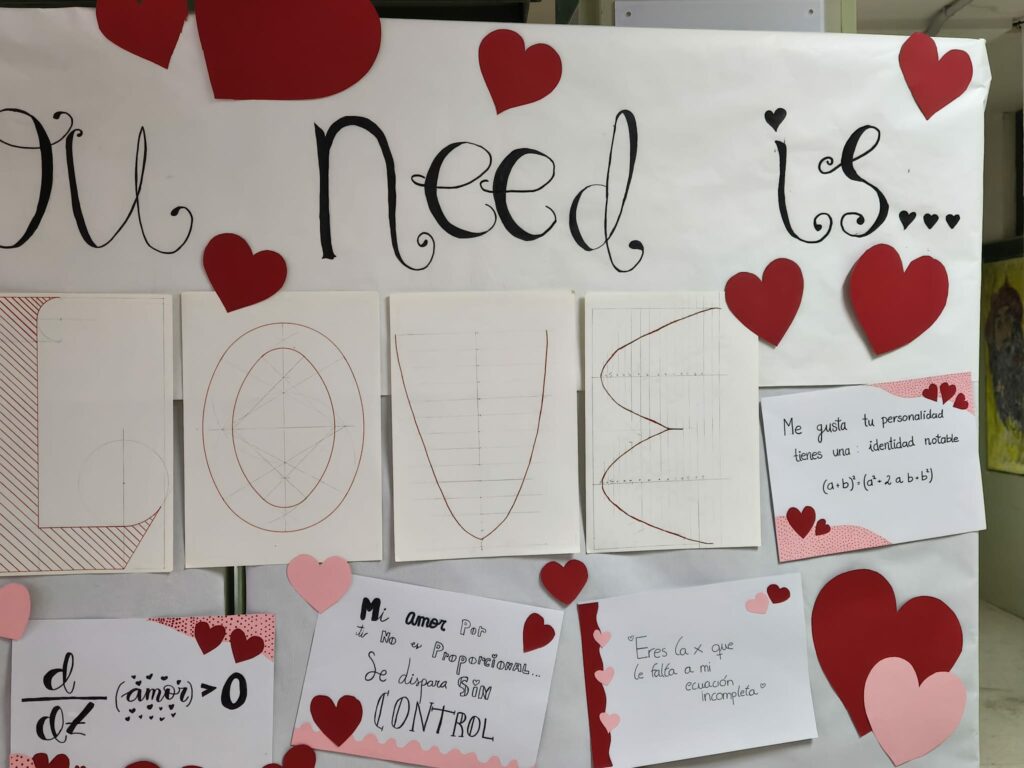 ou need is...
LOVE
Me gusta tu personalidad
tienes una: identidad notable
(a+b)²=(a²+2 a b+b²)
d/dt (amor) > 0
Mi amor Por
ti No es Proporcional...
Se dispara Sin
CONTROL
Eres la x que
le falta a mi
ecuación
incompleta